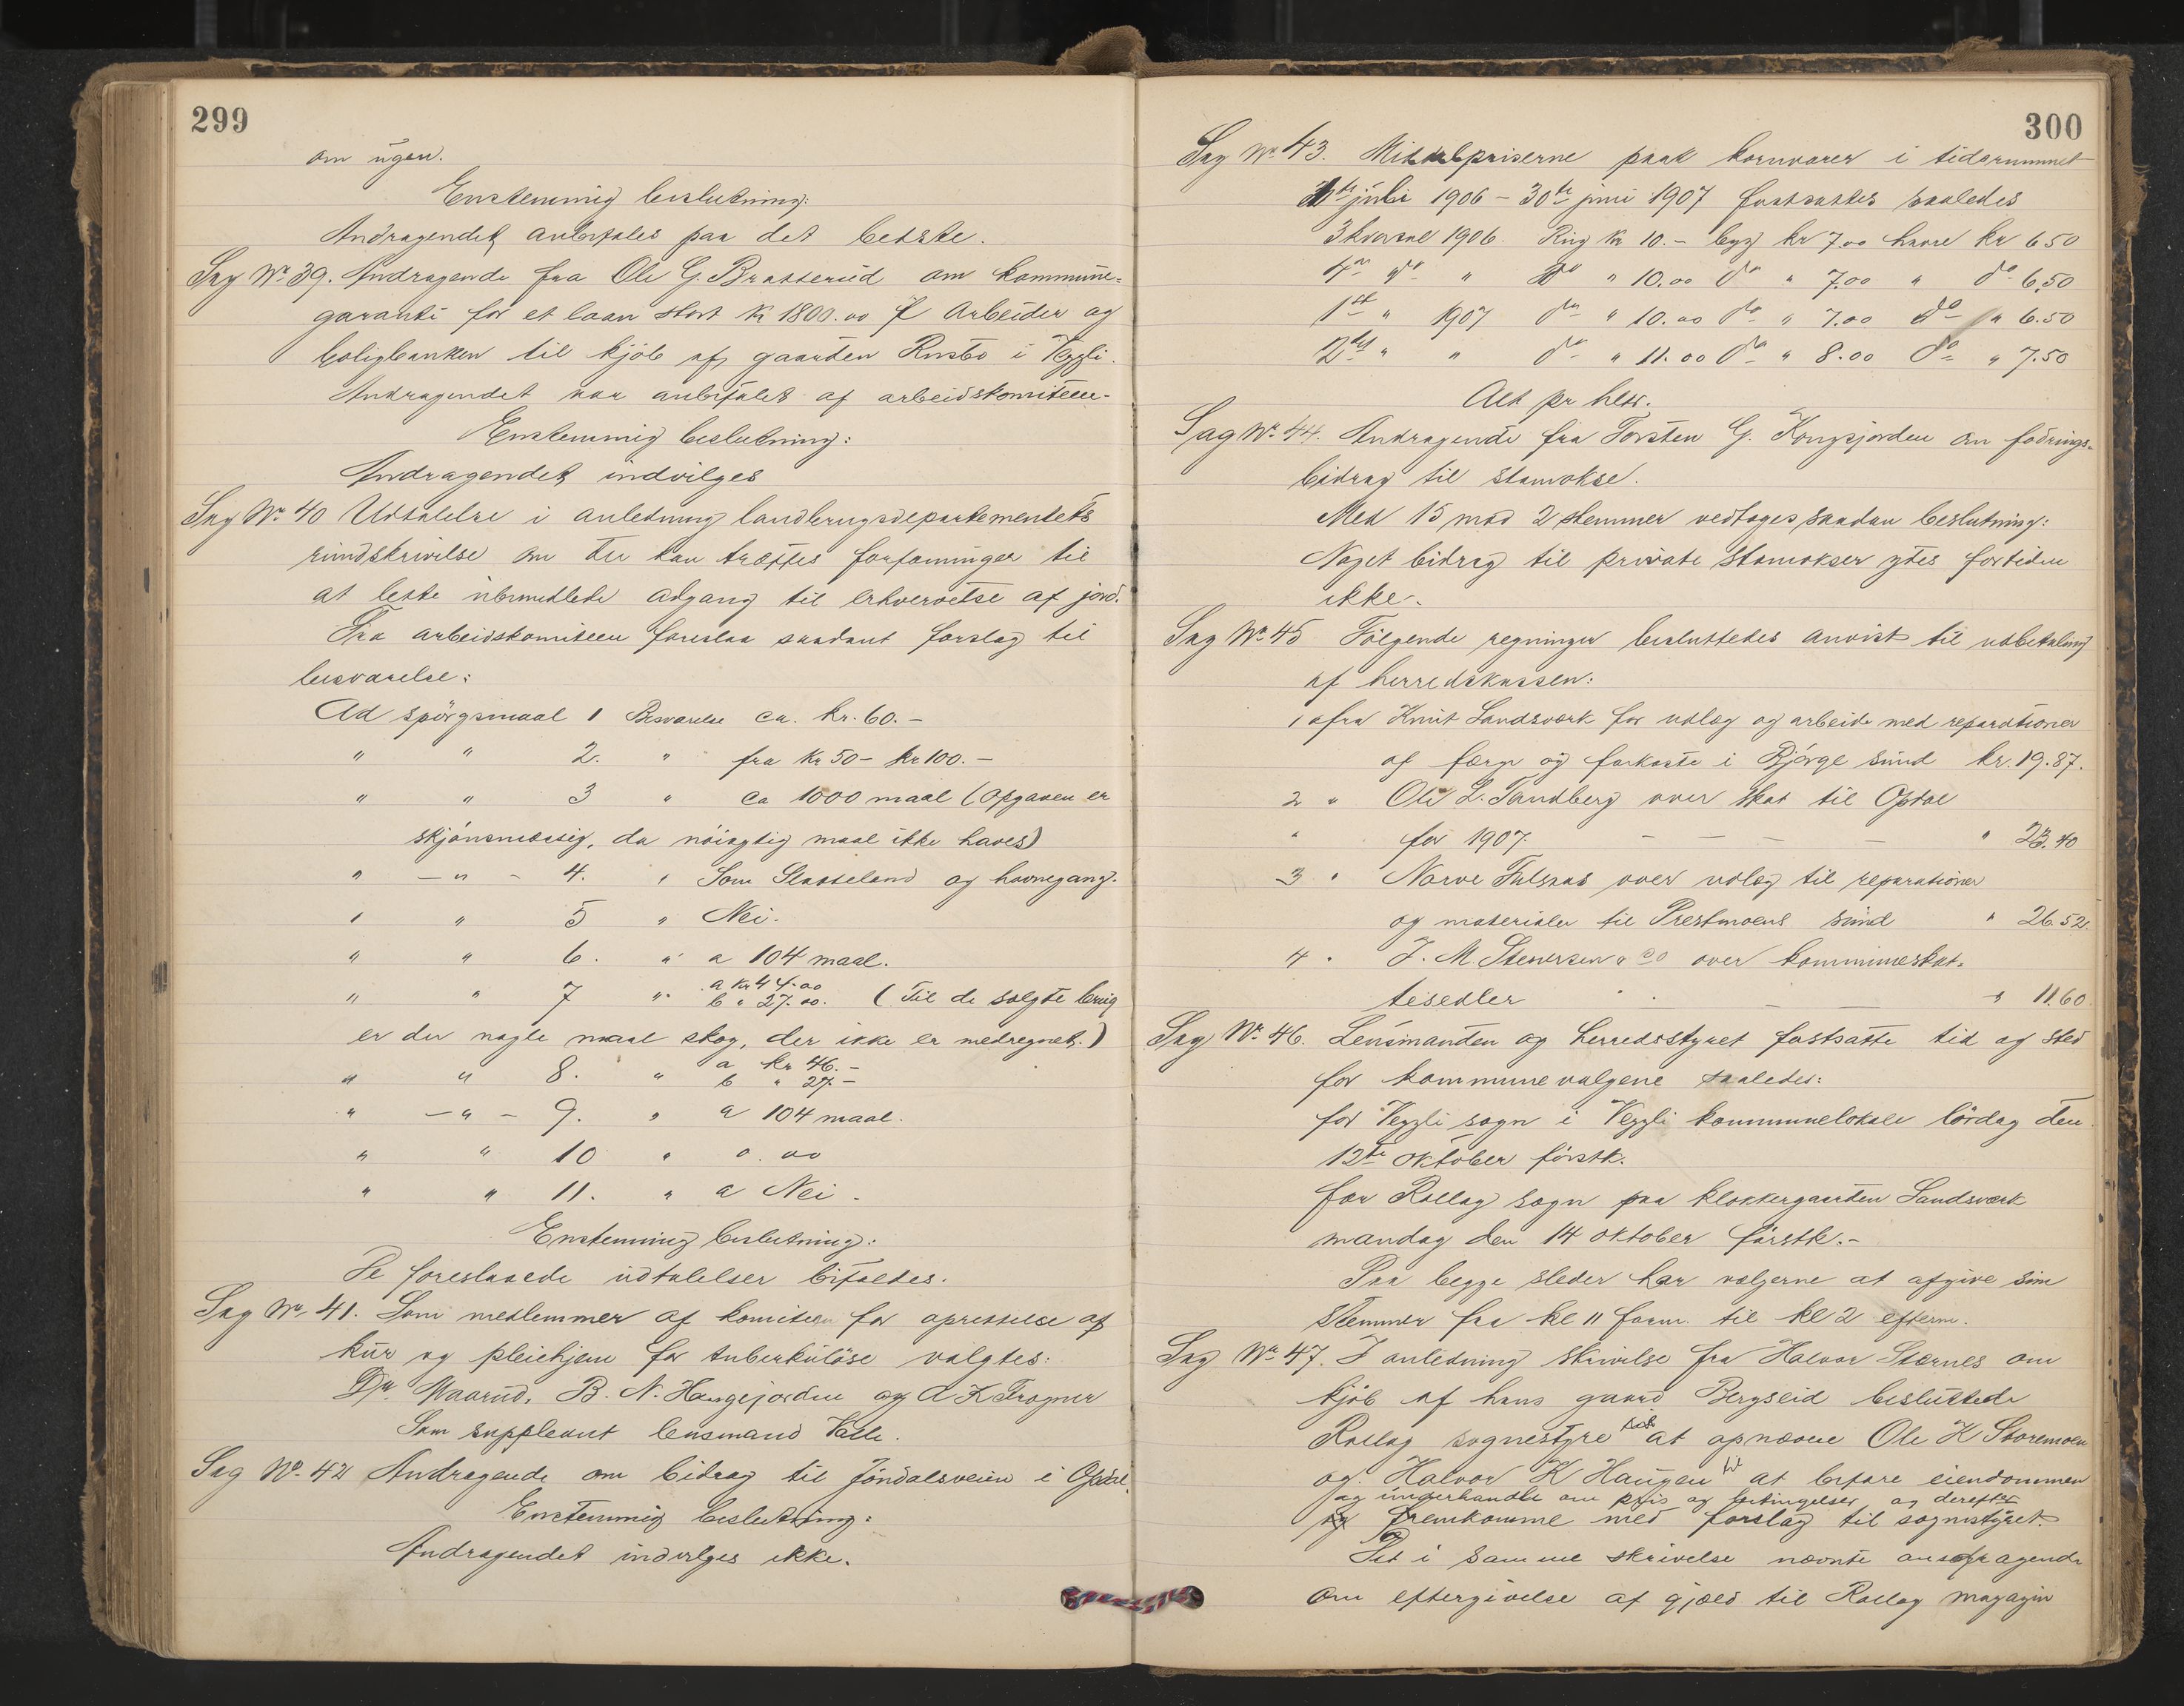 299
om ugen.
Enstemmig beslutning:
Andragendet anbefales paa det bedste.
Sag No. 39. Andragende fra Ole G. Bratterud om kommune-
garanti for et laan stort kr 1800.00 i Arbeider og
boligbanken til kjøb af gaarden Rusto i Veggli.
Andragendet var anbefalet af arbeidskomiteen-
Enstemmig beslutning:
Andragendet indvilges
Sag No. 40 Udtalelse i anledning landbrugsdepartementets
rundskrivelse om der kan træffes forføininger til
at lette ubemidlede adgang til erhvervelse af jord.
Fra arbeidskomiteen foreslaa saadant forslag til
besvarelse:
Ad spørgsmaal 1 Besvarelse ca. kr. 60.-
" " 2. " fra kr 50- kr 100.-
" " 3 " ca 1000 maal (Opgaven er
skjønsmæssig, da nøiagtig maal ikke haves)
" -"- 4. " Som Slaatteland og havnegang.
" " 5 " Nei.
" " 6. " a 104 maal.
" " 7 " a kr 44.00 b " 27.00. (Til de solgte brug
er der nogle maal skog, der ikke er medregnet.)
" " 8. " a kr 46.- b " 27.-
" -"- 9. " a 104 maal.
" " 10 " 0.00
" " 11. " a Nei.
Enstemmig beslutning:
De foreslaaede udtalelser bifaldes.
Sag No. 41. Som medlemmer af komiteen for oprettelse af
kur og pleiehjem for tuberkuløse valgtes:
Dr. Maarud, B. N. Haugejorden og A K Frogner
Som suppleant lensmand Valle.
Sag No. 42 Andragende om bidrag til Jøndalsveien i Opdal.
Enstemmig beslutning:
Andragendet indvilges ikke.
300
Sag No. 43. Middelpriserne paa kornvarer i tidsrummet
1ste juli 1906 - 30te juni 1907 fastsattes saaledes
3 kvartal 1906. Rug kr 10.- byg kr 7.00 havre kr 6.50
4de do " do " 10.00 do " 7.00 " do 6.50
1ste " 1907 do " 10.00 do " 7.00 do " 6.50
2det " " do " 11.00 do " 8.00 do " 7.50
Alt pr hltr.
Sag No. 44. Andragende fra Torsten G. Kongsjorden om fodrings-
bidrag til stamokse.
Med 15 mod 2 stemmer vedtoges saadan beslutning:
Noget bidrag til private stamokser ydes fortiden
ikke.
Sag No. 45 Følgende regninger besluttedes anvist til udbetaling
af herredskassen:
1 a fra Knut Landsværk for udlæg og arbeide med reparationer
af færge og farkoste i Bjørge sund kr. 19.87.
2 " Ole L. Tandberg over skat til Opdal
" for 1907. - - - - " 23.40
3 " Narve Fulsaas over udlæg til reparationer
og materialer til Prestmoens sund " 26.52.
4 " J. M. Stenersen & Co over kommuneskat-
tesedler - - " 11.60
Sag No. 46. Lensmanden og herredsstyret fastsatte tid og sted
for kommunevalgene saaledes:
for Veggli sogn i Veggli kommunelokale lørdag den
12te oktober førstk.
for Rollag sogn paa klokkergaarden Landsværk
mandag den 14 oktober førstk.-
Paa begge steder har vælgerne at afgive sine
stemmer fra kl 11 form. til kl 2 efterm.
Sag No. 47. I anledning skrivelse fra Halvor Stærnes om
kjøb af hans gaard Bergseid besluttede
Rollag sognestyre at opnævne Ole K Storemoen
og Halvor K Haugen til at befare eiendommen
og underhandle om pris og betingelser og derefter
fremkomme med forslag til sognestyret.
Det i samme skrivelse nævnte andragende
om eftergivelse af gjæld til Rollag magazin